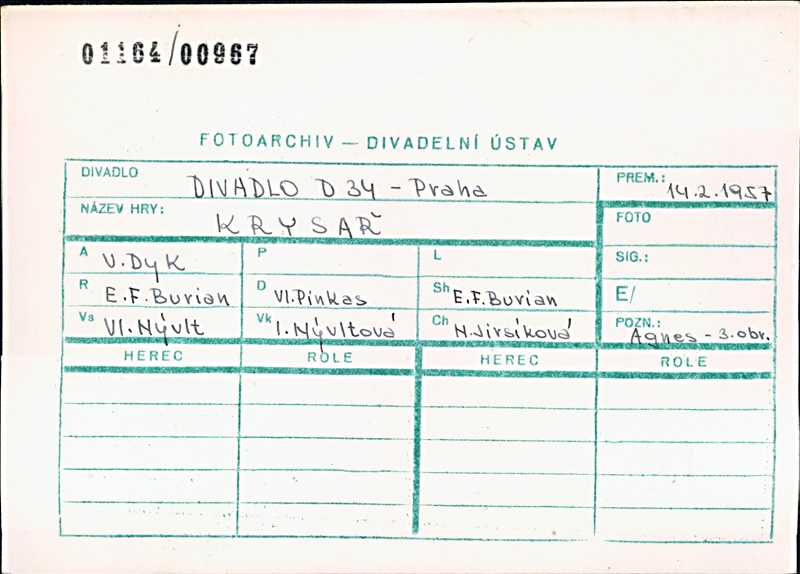 01164/00967
FOTOARCHIV — DIVADELNÍ ÚSTAV
DIVADLO DIVADLO D 34 - Praha
PREM.: 14.2.1957
NÁZEV HRY: KRYSAŘ
FOTO
A V. Dyk
P
L
SIG.:
R E.F. Burian
D Vl. Pinkas
Sh E.F. Burian
E/
Vs Vl. Nývlt
Vk I. Nývltová
Ch N. Jirsíková
POZN.: Agnes - 3. obr.
HEREC ROLE HEREC ROLE